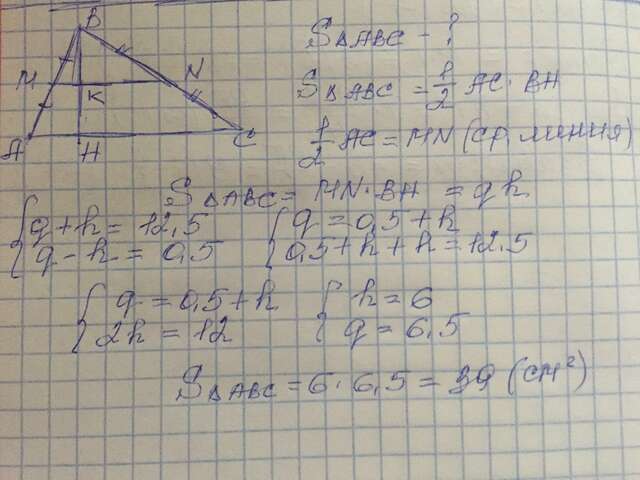 B
S△ABC - ?
M
N
K
S△ABC = 1/2 AC · BH
A
H
C
1/2 AC = MN (ср. линия)
S△ABC = MN · BH = qh
{ q + h = 12,5
q - h = 0,5
{ q = 0,5 + h
0,5 + h + h = 12.5
{ q = 0,5 + h
2h = 12
{ h = 6
q = 6,5
S△ABC = 6 · 6,5 = 39 (см²)